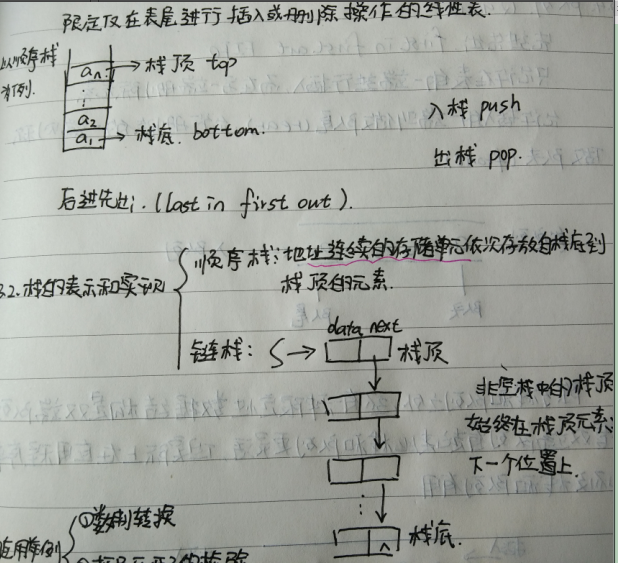 限定仅在表尾进行插入或删除操作的线性表.
以顺序栈
为例.
an → 栈顶 top
⋮
a2
a1 → 栈底. bottom.
入栈 push
出栈 pop.
后进先出. (last in first out).
3.2. 栈的表示和实现
顺序栈: 地址连续的存储单元依次存放自栈底到
栈顶的元素.
data next
链栈: S → 栈顶
非空栈中的栈顶
始终在栈顶元素
下一个位置上.
⋮
∧ 栈底.
应用举例
①数制转换